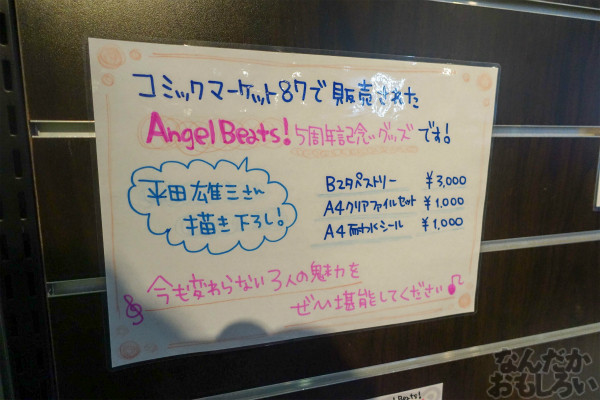 コミックマーケット87で販売された
Angel Beats! 5周年記念グッズです!
平田雄三さん
描き下ろし!
B2タペストリー ¥3,000
A4クリアファイルセット ¥1,000
A4耐水シール ¥1,000
今も変わらない3人の魅力を
ぜひ堪能してください♪
なんだか
おもしろい